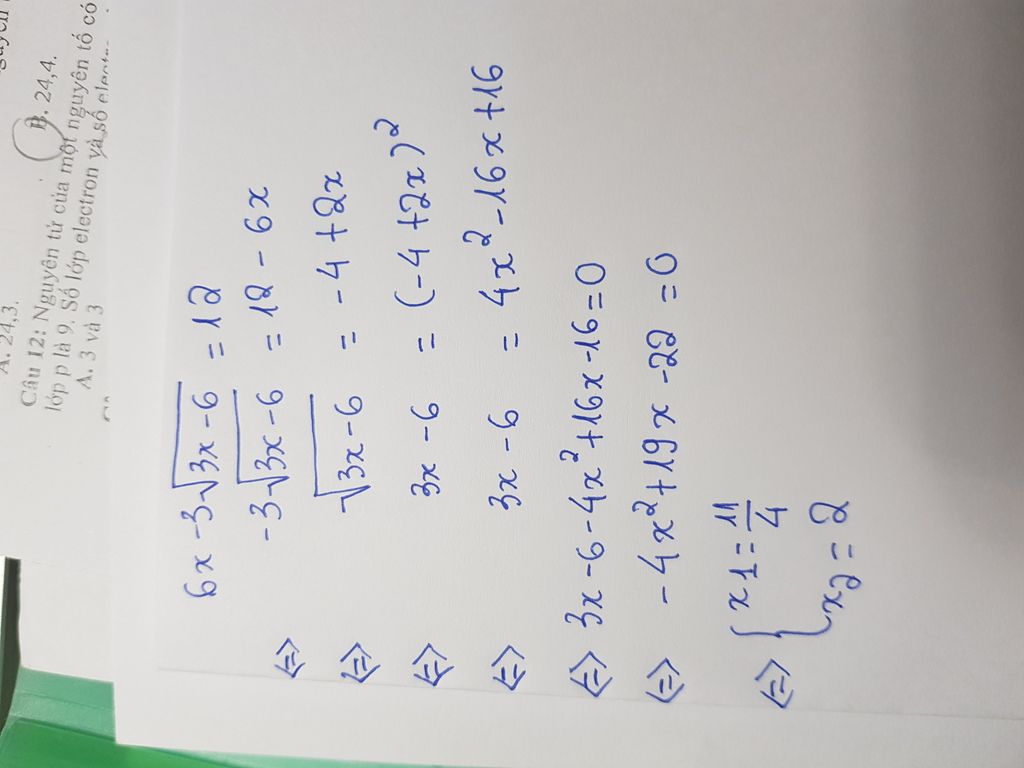 A. 24,3.
B. 24,4.
Câu 12: Nguyên tử của một nguyên tố có
lớp p là 9. Số lớp electron và số electron
A. 3 và 3
6x - 3√(3x - 6) = 12
⇔ -3√(3x - 6) = 12 - 6x
⇔ √(3x - 6) = -4 + 2x
⇔ 3x - 6 = (-4 + 2x)²
⇔ 3x - 6 = 4x² - 16x + 16
⇔ 3x - 6 - 4x² + 16x - 16 = 0
⇔ -4x² + 19x - 22 = 0
⇔ { x1 = 11/4
x2 = 2